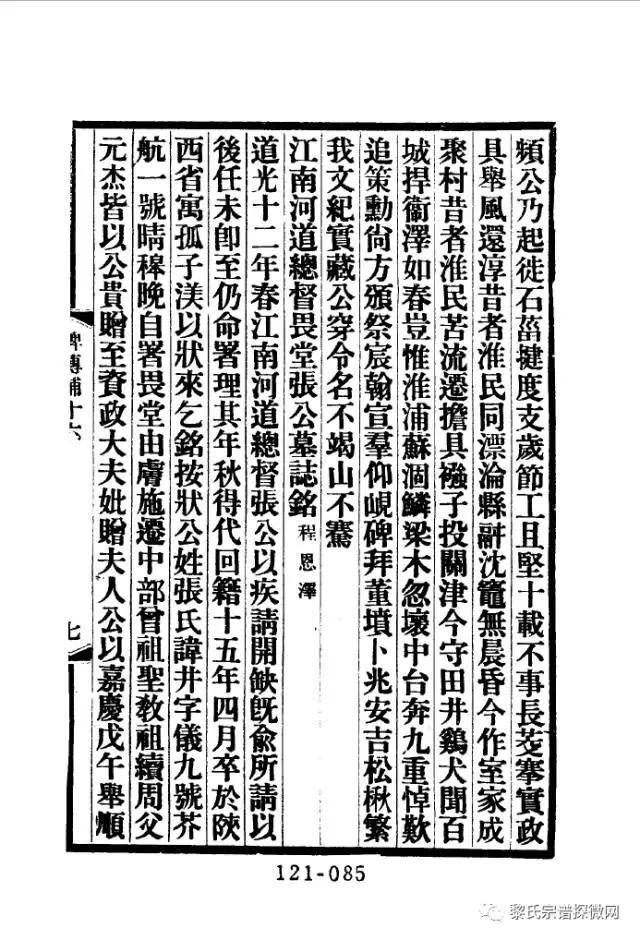 頻公乃起徙石菑揵度支歲節工且堅十載不事長茭搴實政
具舉風還淳昔者淮民同漂淪縣辭沈竈無晨昏今作室家成
聚村昔者淮民苦流遷擔具襁子投關津今守田井鷄犬聞百
城捍衞澤如春豈惟淮浦蘇涸鱗梁木忽壞中台奔九重悼歎
追策勳尙方頒祭宸翰宣羣仰峴碑拜董墳卜兆安吉松楸繁
我文紀實藏公穿令名不竭山不騫
江南河道總督畏堂張公墓誌銘 程恩澤
道光十二年春江南河道總督張公以疾請開缺旣俞所請以
後任未卽至仍命署理其年秋得代回籍十五年四月卒於陝
西省寓孤子渼以狀來乞銘按狀公姓張氏諱井字儀九號芥
航一號晴稺晚自署畏堂由膚施遷中部曾祖聖敎祖續周父
元杰皆以公貴贈至資政大夫妣贈夫人公以嘉慶戊午舉順
碑傳補十六
七
121-085
黎氏宗谱探微网